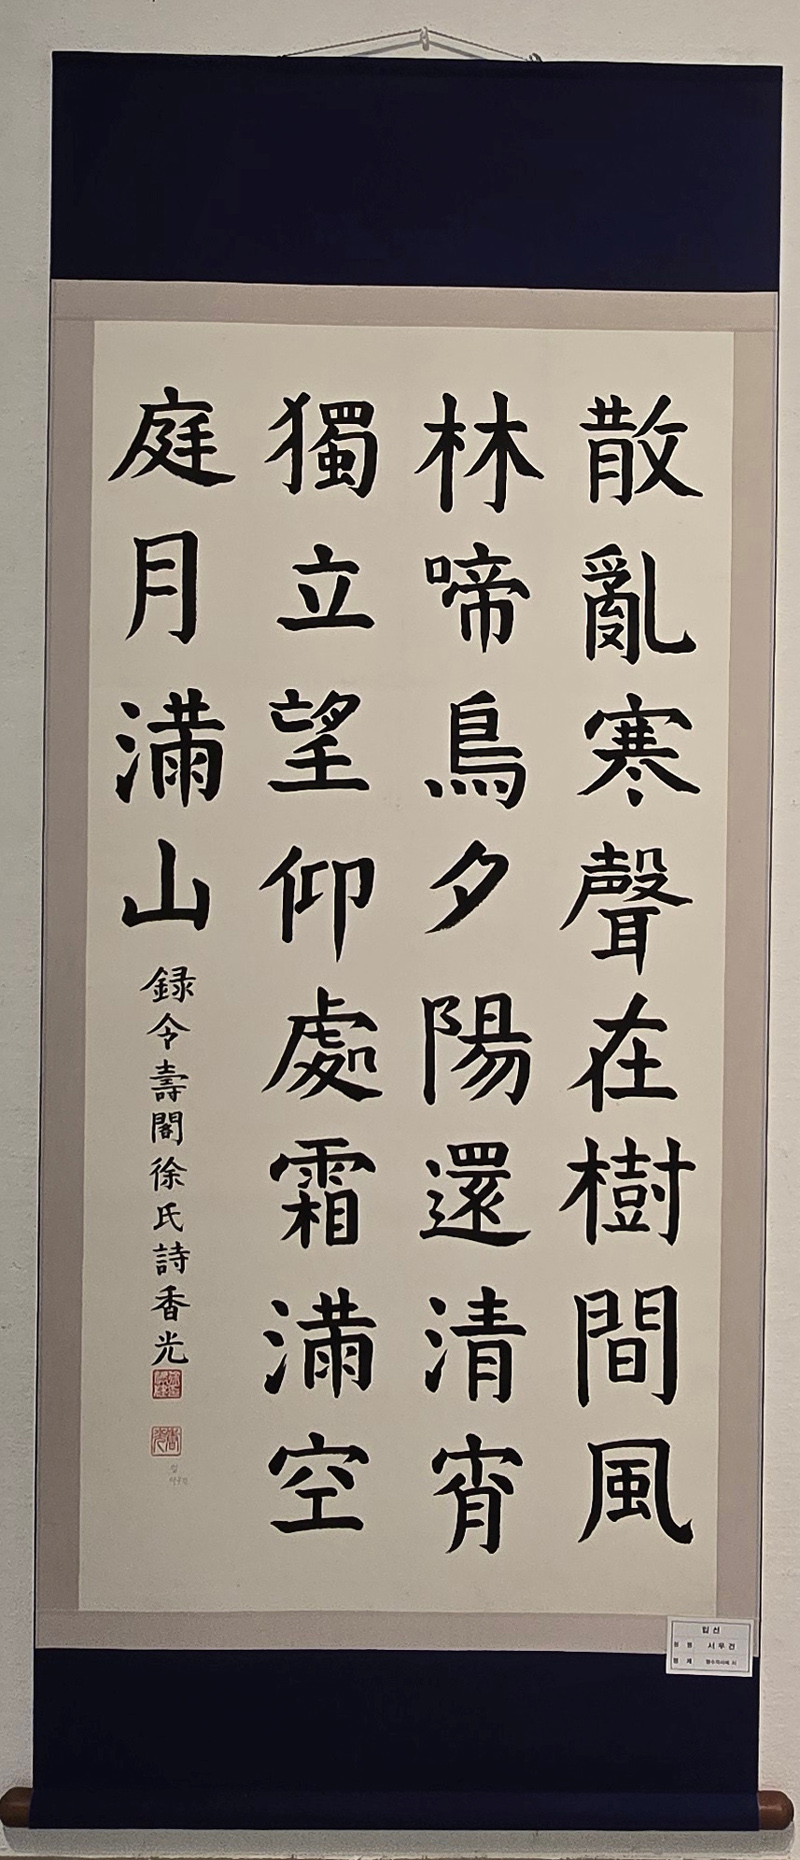 散亂寒聲在樹間風
林啼鳥夕陽還清宵
獨立望仰處霜滿空
庭月滿山
録令壽閣徐氏詩香光
입선
서우건